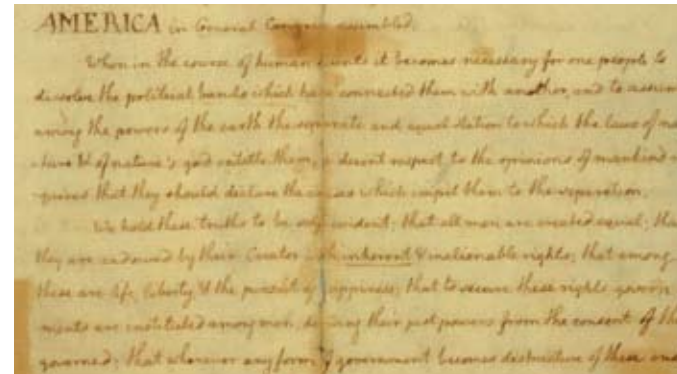 AMERICA in General Congress assembled.
When in the course of human events it becomes necessary for one people to
dissolve the political bands which have connected them with another, and to assum
among the powers of the earth the separate and equal station to which the laws of na
-ture & of nature's god entitle them, a decent respect to the opinions of mankind
-quires that they should declare the causes which impel them to the separation.
We hold these truths to be self evident; that all men are created equal; tha
they are endowed by their Creator with inherent & inalienable rights; that among
these are life, liberty, & the pursuit of happiness; that to secure these rights, govern
ments are instituted among men, deriving their just powers from the consent of th
governed; that whenever any form of government becomes destructive of these